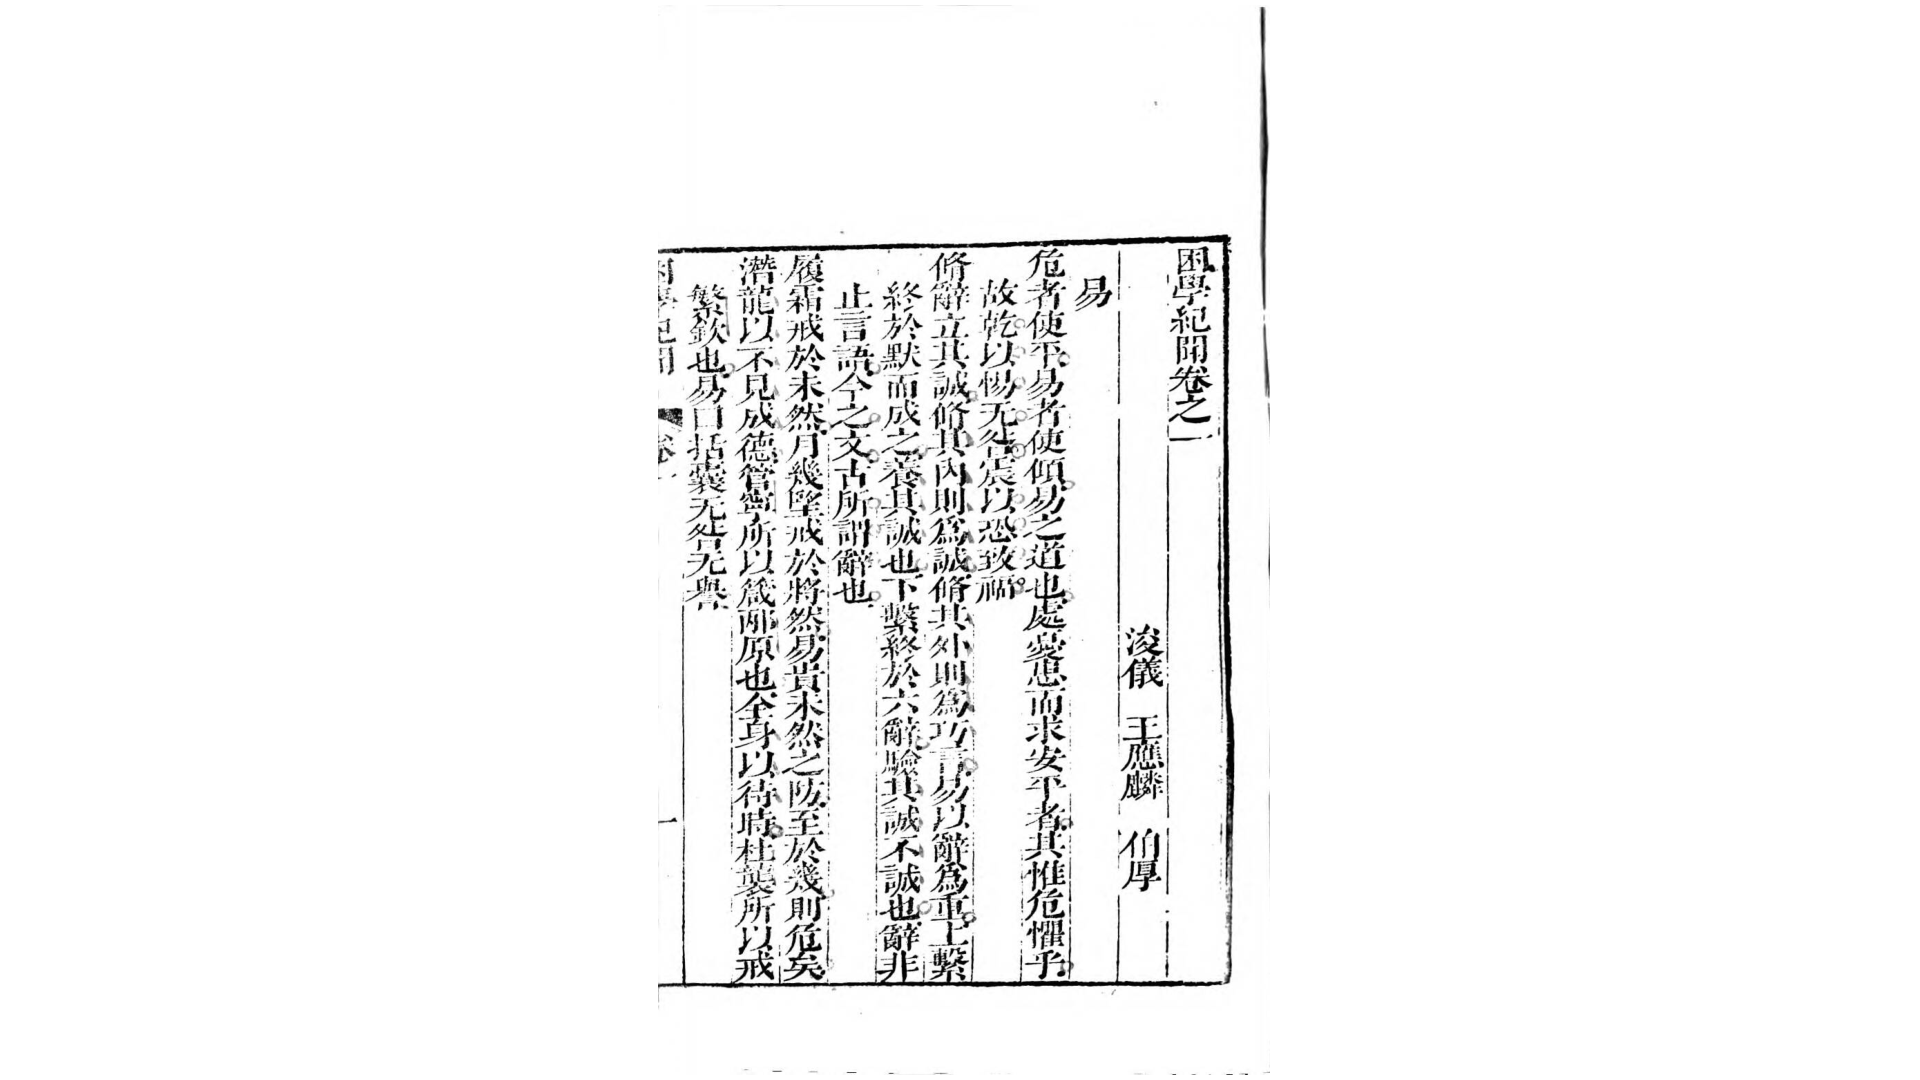 困學紀聞卷之一
浚儀 王應麟 伯厚
易
危者使平易者使傾易之道也處憂患而求安平者其惟危懼乎
故乾以惕无咎震以恐致福
脩辭立其誠脩其內則爲誠脩其外則爲巧言易以辭爲重上繫
終於默而成之養其誠也下繫終於六辭驗其誠不誠也辭非
止言語今之文古所謂辭也
履霜戒於未然月幾望戒於將然易貴未然之防至於幾則危矣
潛龍以不見成德管寧所以箴邴原也全身以待時杜襲所以戒
繁欽也易曰括囊无咎无譽
困學紀聞 卷一 一